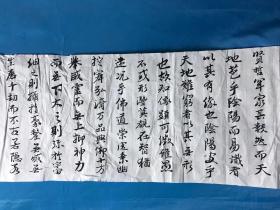 賢哲罕窮其數然而天
地苞乎陰陽而易識者
以其有像也陰陽處乎
天地難窮者以其無形
也故知像顯可徵雖愚
不惑形潛莫睹在智猶
迷況乎佛道崇虛乘幽
控寂弘濟萬品典御十方
舉威靈而無上抑神力
而無下大之則彌於宇宙
細之則攝於毫釐無滅無
生歷千劫而不古若隱若